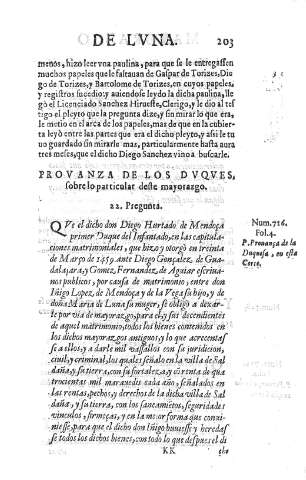 DE LVNA. 203
menos, hizo leer vna paulina, para que se le entregassen
muchos papeles que le faltauan de Gaspar de Torizes, Die
go de Torizes, y Bartolome de Torizes, en cuyos papeles,
y registros sucedio: y auiendose leydo la dicha paulina, lle
gò el Licenciado Sanchez Hirueste, Clerigo, y le dio al tes
tigo el pleyto que la pregunta dize, y sin mirar lo que era,
le metio en el arca de los papeles, mas de que en la cubier
ta leyò entre las partes que era el dicho pleyto, y assi le tu
uo guardado sin mirarle mas, particularmente hasta aura
tres meses, que el dicho Diego Sanchez vino a buscarle.
PROVANZA DE LOS DVQVES,
sobre lo particular deste mayorazgo.
22. Pregunta.
QVe el dicho don Diego Hurtado de Mendoça
primer Duque del Infantado, en las capitulacio
nes matrimoniales, que hizo y otorgò en treinta
de Março de 1459 ante Diego Gonçalez, de Gua-
dalajara, y Gomez, Fernandez, de Aguiar escriua-
nos publicos, por causa de matrimonio, entre don
Iñigo Lopez, de Mendoça y de la Vega su hijo, y de
doña Maria de Luna su muger, se obligò a dexar-
le por via de mayorazgo, para el, y sus decendientes
de aquel matrimonio, todos los bienes contenidos en
los dichos mayorazgos antiguos, y lo que acrecentas
se a ellos, y a darle mil vassallos con su juridicion,
ciuil, y criminal, los quales señalo en la villa de Sal
daña, y su tierra, con su fortaleza, y con renta de qua
trocientas mil marauedis cada año, señalados en
las rentas, pechos, y derechos de la dicha villa de Sal
daña, y su tierra, con los saneamientos, seguridades
vinculos, firmezas, y en la mejor forma que conui-
niesse, para que el dicho don Iñigo huuiesse y heredas
se todos los dichos bienes, con todo lo que despues el di
KK cho
Num. 716.
Fol. 4.
P. Prouança de la
Duquesa, en esta
Corte.